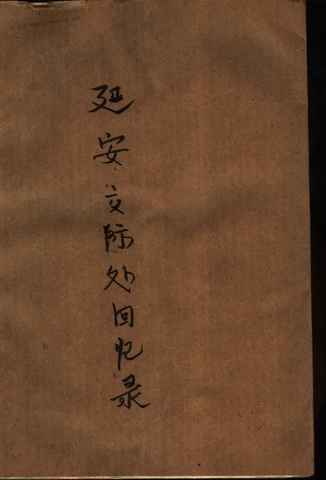 延安交际处回忆录